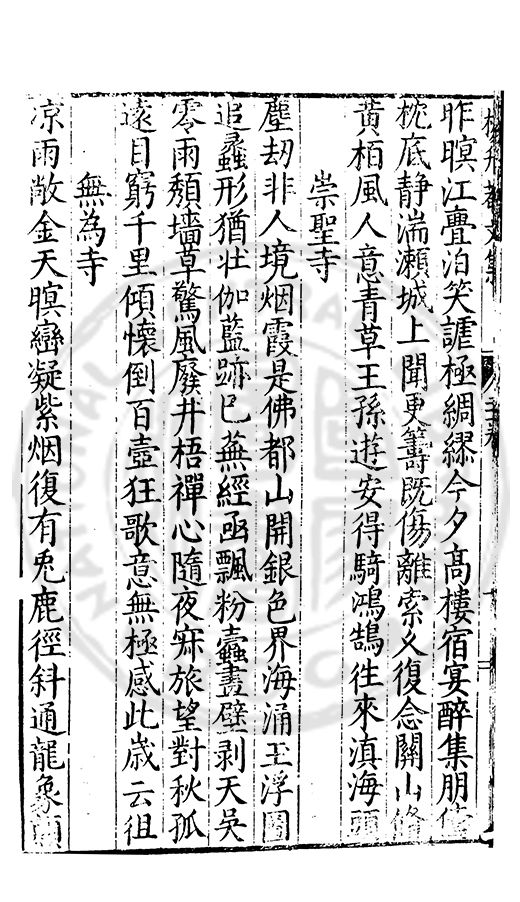 昨暝江亹泊笑謔極綢繆今夕高樓宿宴醉集朋儔
枕底静湍瀨城上聞更籌既傷離索久復念關山脩
黄栢風人意青草王孫遊安得騎鴻鵠徃來滇海頭
崇聖寺
塵刼非人境烟霞是佛都山開銀色界海涌玉浮圖
追蠡形猶壯伽藍跡已蕪經凾飄粉蠧畫壁剥天吳
零雨頽墻草驚風廢井梧禪心隨夜寂旅望對秋孤
遠目窮千里傾懷倒百壺狂歌意無極感此歲云徂
無為寺
凉雨敞金天暝巒凝紫烟復有兎鹿徑斜通龍象